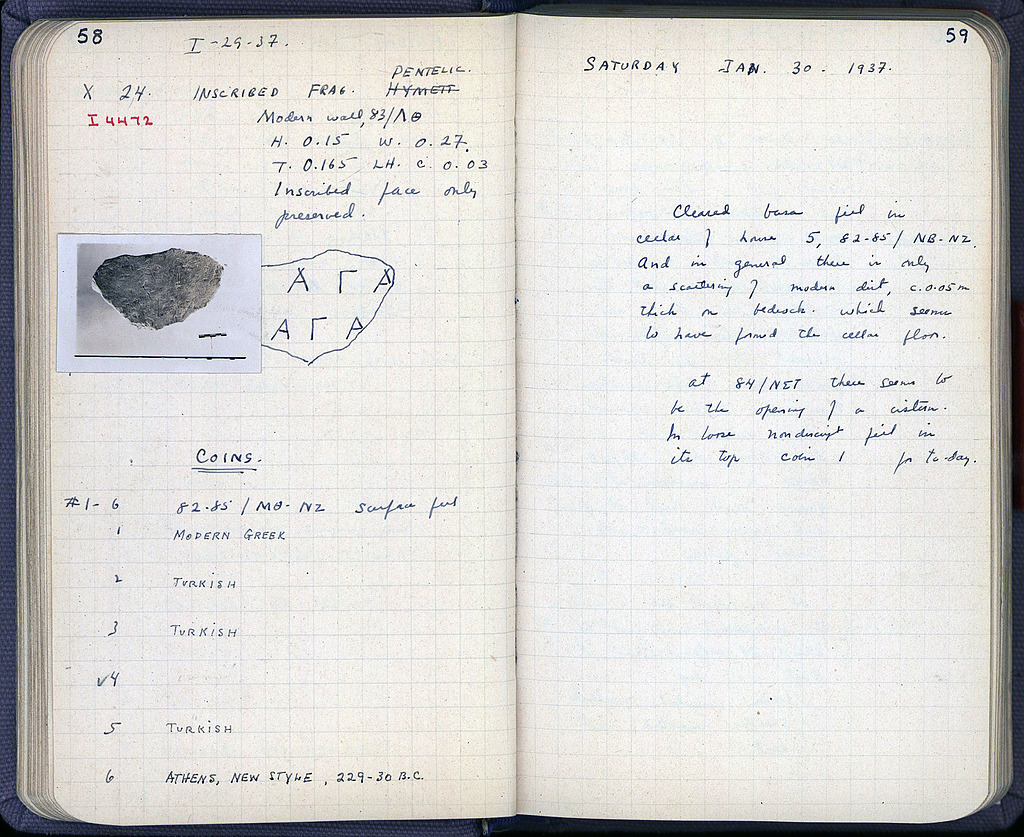 58
I-29-37.
PENTELIC.
X 24. INSCRIBED FRAG. HYMETT
I 4472
Modern wall, 83/ΛΘ
H. 0.15 W. 0.27.
T. 0.165 LH. c. 0.03
Inscribed face only
preserved.
Α Γ Α
Α Γ Α
COINS.
#1-6 82-85/ΜΘ-ΝΖ Surface fill
1 MODERN GREEK
2 TURKISH
3 TURKISH
√4
5 TURKISH
6 ATHENS, NEW STYLE, 229-30 B.C.
59
SATURDAY JAN. 30. 1937.
Cleared fill in
cellar of house 5, 82-85/ΝΒ-ΝΖ.
And in general there is only
a scattering of modern dirt, c.0.05m
thick on bedrock. which seems
to have formed the cellar floor.
at 84/ΝΣΤ there seems to
be the opening of a cistern.
In loose nondescript fill in
its top coin 1 for to-day.